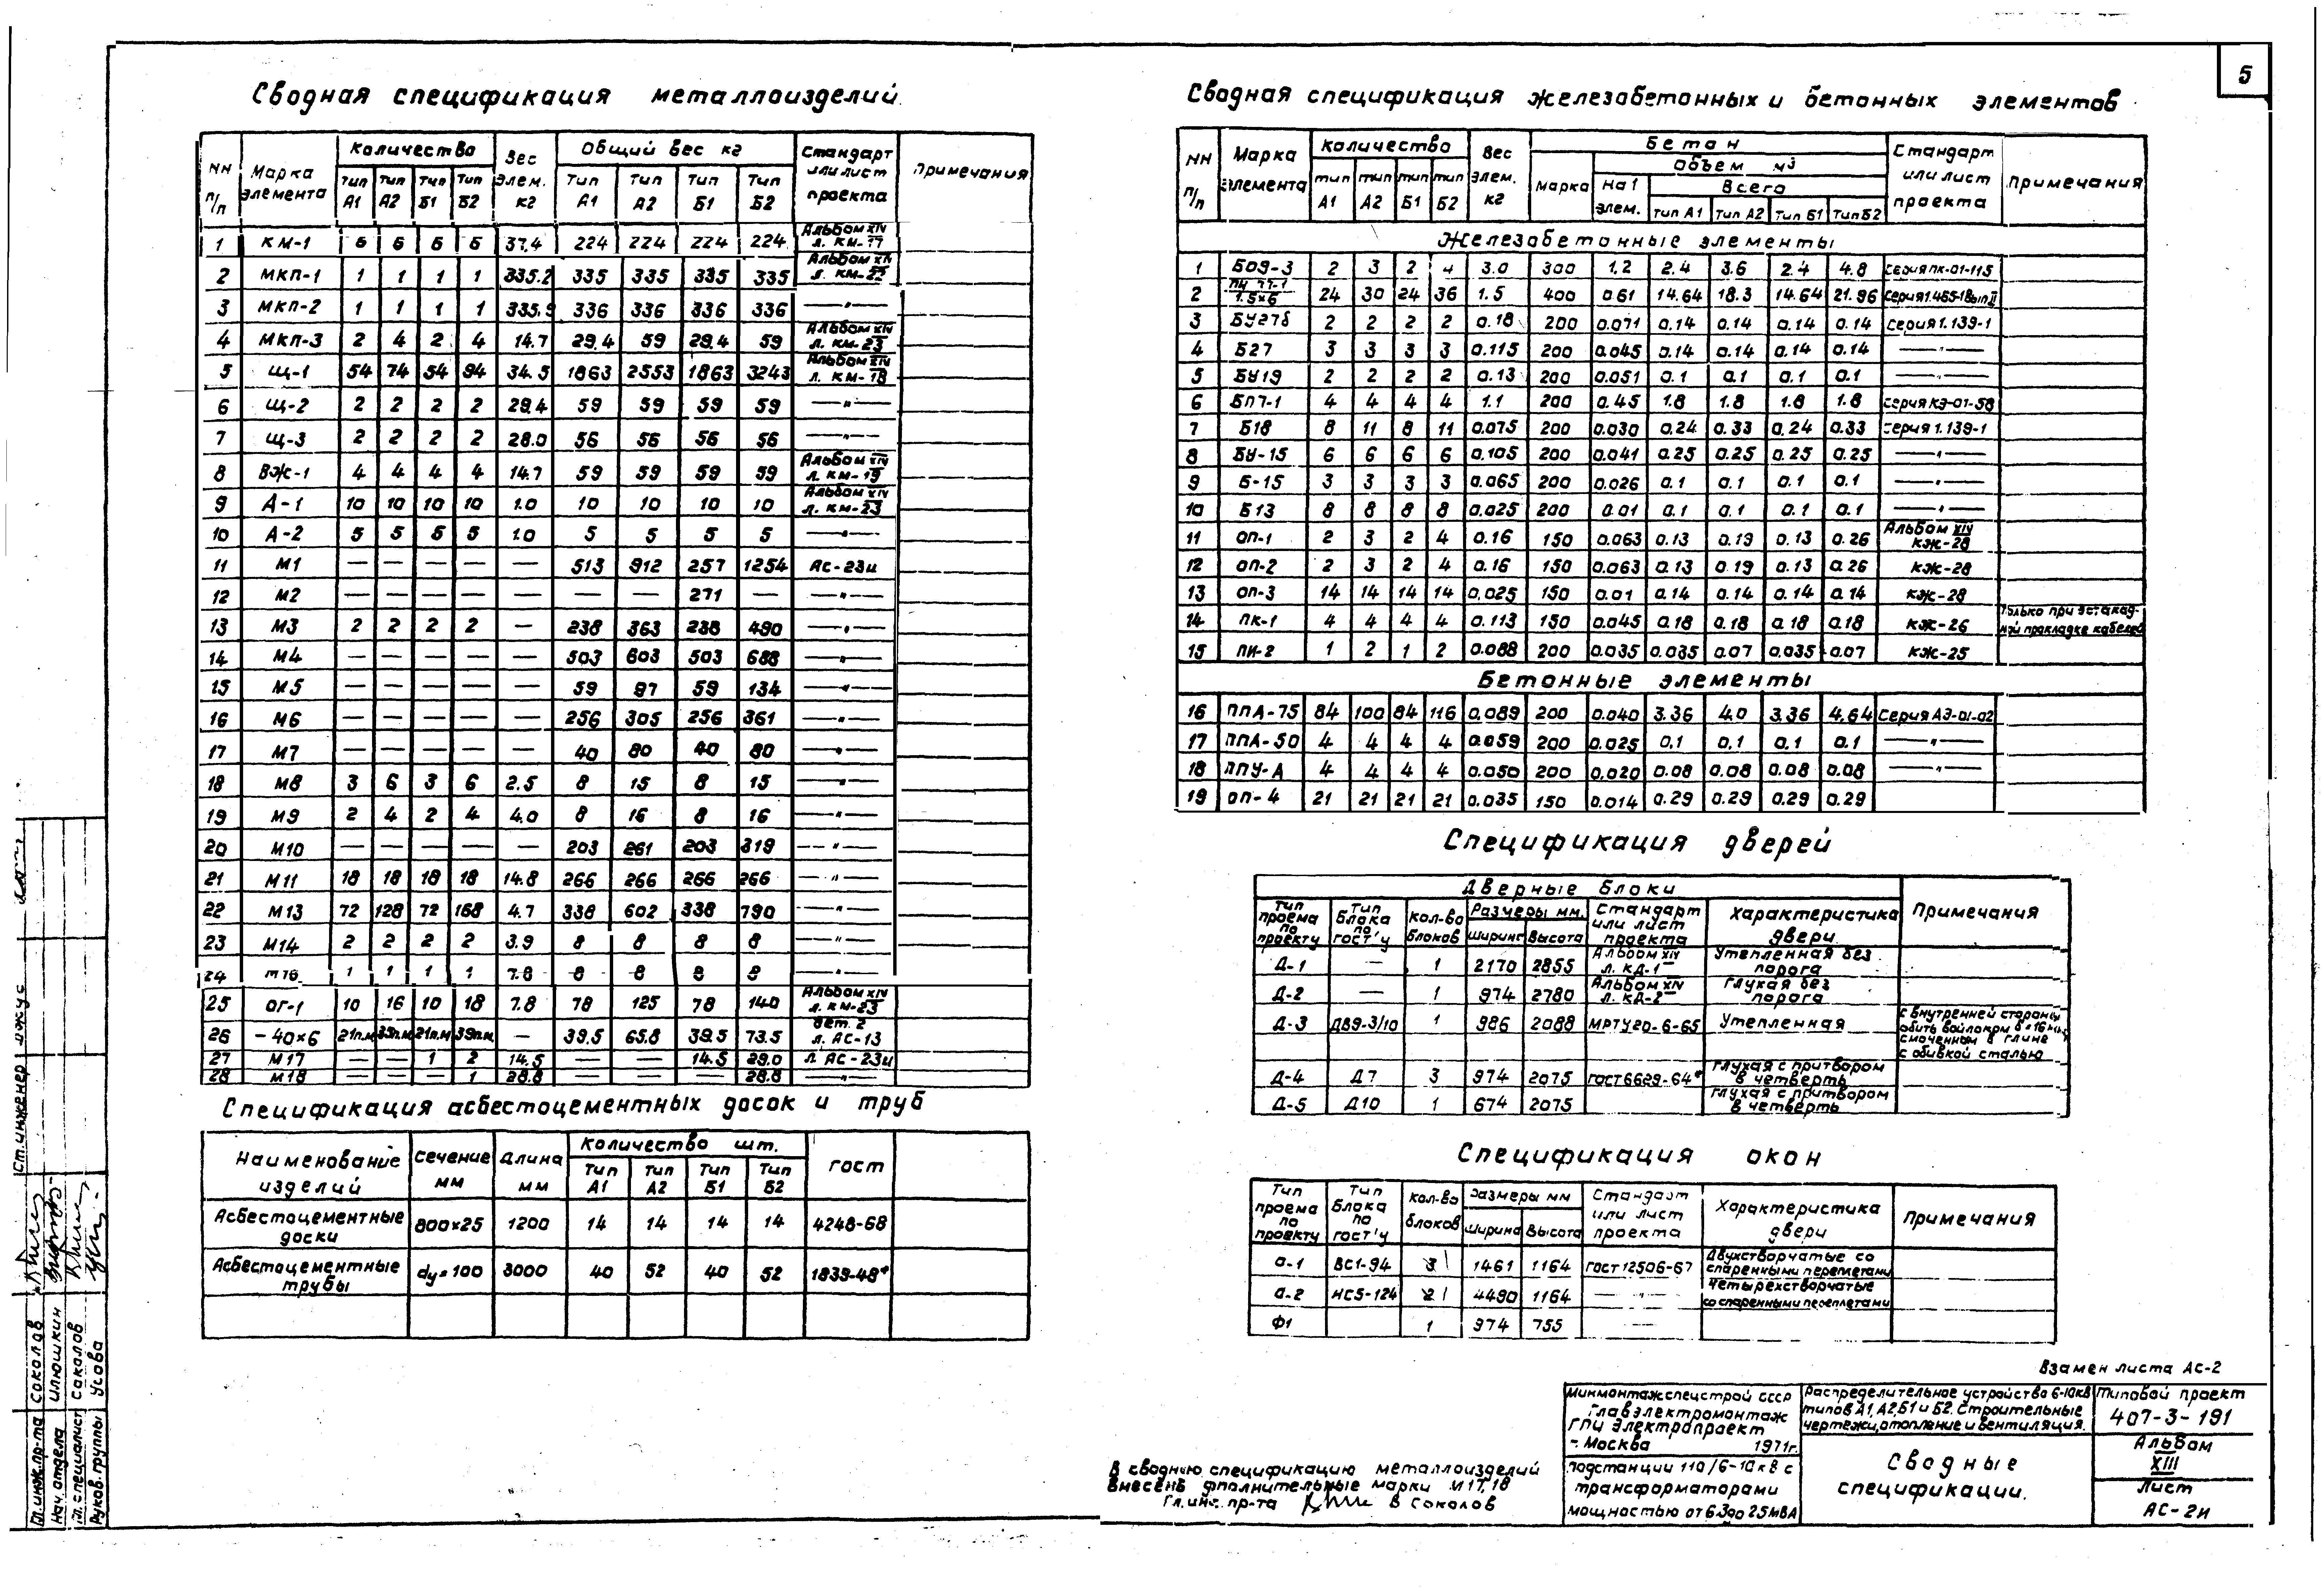 5
Сводная спецификация металлоизделий
NN п/п | Марка элемента | Количество | Вес элем. кг | Общий вес кг | Стандарт или лист проекта | Примечания
Тип А1 | Тип А2 | Тип Б1 | Тип Б2 | Тип А1 | Тип А2 | Тип Б1 | Тип Б2
1 КМ-1 6 6 6 6 37.4 224 224 224 224 Альбом XIV л. КМ-17
2 МКП-1 1 1 1 1 335.2 335 335 335 335 Альбом XIV л. КМ-22
3 МКП-2 1 1 1 1 335.9 336 336 336 336 —"—
4 МКП-3 2 4 2 4 14.7 29.4 59 29.4 59 Альбом XIV л. КМ-23
5 Щ-1 54 74 54 94 34.5 1863 2553 1863 3243 Альбом XIV л. КМ-18
6 Щ-2 2 2 2 2 29.4 59 59 59 59 —"—
7 Щ-3 2 2 2 2 28.0 56 56 56 56 —"—
8 ВЖ-1 4 4 4 4 14.7 59 59 59 59 Альбом XIV л. КМ-19
9 А-1 10 10 10 10 1.0 10 10 10 10 Альбом XIV л. КМ-23
10 А-2 5 5 5 5 1.0 5 5 5 5 —"—
11 М1 — — — — — 513 912 257 1254 АС-23и
12 М2 — — — — — — — 271 — —"—
13 М3 2 2 2 2 — 238 363 238 490 —"—
14 М4 — — — — — 503 603 503 688 —"—
15 М5 — — — — — 59 97 59 134 —"—
16 М6 — — — — — 256 305 256 361 —"—
17 М7 — — — — — 40 80 40 80 —"—
18 М8 3 6 3 6 2.5 8 15 8 15 —"—
19 М9 2 4 2 4 4.0 8 16 8 16 —"—
20 М10 — — — — — 203 261 203 319 —"—
21 М11 18 18 18 18 14.8 266 266 266 266 —"—
22 М13 72 128 72 168 4.7 338 602 338 790 —"—
23 М14 2 2 2 2 3.9 8 8 8 8 —"—
24 М16 1 1 1 1 7.8 8 8 8 8 —"—
25 ОГ-1 10 16 10 18 7.8 78 125 78 140 Альбом XIV л. КМ-23
26 —40×6 21п.м 35п.м 21п.м 39п.м — 39.5 65.8 39.5 73.5 дет. 2 л. АС-13
27 М17 — — 1 2 14.5 — — 14.5 29.0 л. АС-23и
28 М18 — — — 1 28.8 — — — 28.8 —"—
Спецификация асбестоцементных досок и труб
Наименование изделий | Сечение мм | Длина мм | Количество шт. | ГОСТ
Тип А1 | Тип А2 | Тип Б1 | Тип Б2
Асбестоцементные доски 800×25 1200 14 14 14 14 4248-68
Асбестоцементные трубы dу=100 3000 40 52 40 52 1839-48*
Сводная спецификация железобетонных и бетонных элементов
NN п/п | Марка элемента | Количество | Вес элем. кг | Бетон | Стандарт или лист проекта | Примечания
Тип А1 | Тип А2 | Тип Б1 | Тип Б2 | Марка | Объем м3
На 1 элем. | Всего
Тип А1 | Тип А2 | Тип Б1 | Тип Б2
Железобетонные элементы
1 БО9-3 2 3 2 4 3.0 300 1.2 2.4 3.6 2.4 4.8 Серия ПК-01-115
2 1.5×6 24 30 24 36 1.5 400 0.61 14.64 18.3 14.64 21.96 Серия 1.465-1 Вып II
3 БУ27б 2 2 2 2 0.18 200 0.071 0.14 0.14 0.14 0.14 Серия 1.139-1
4 Б27 3 3 3 3 0.115 200 0.045 0.14 0.14 0.14 0.14 —"—
5 БУ19 2 2 2 2 0.13 200 0.051 0.1 0.1 0.1 0.1 —"—
6 БП7-1 4 4 4 4 1.1 200 0.45 1.8 1.8 1.8 1.8 Серия КЭ-01-58
7 Б18 8 11 8 11 0.075 200 0.030 0.24 0.33 0.24 0.33 Серия 1.139-1
8 БУ-15 6 6 6 6 0.105 200 0.041 0.25 0.25 0.25 0.25 —"—
9 Б-15 3 3 3 3 0.065 200 0.026 0.1 0.1 0.1 0.1 —"—
10 Б13 8 8 8 8 0.025 200 0.01 0.1 0.1 0.1 0.1 —"—
11 ОП-1 2 3 2 4 0.16 150 0.063 0.13 0.19 0.13 0.26 Альбом XIV КЖ-28
12 ОП-2 2 3 2 4 0.16 150 0.063 0.13 0.19 0.13 0.26 КЖ-28
13 ОП-3 14 14 14 14 0.025 150 0.01 0.14 0.14 0.14 0.14 КЖ-28
14 ПК-1 4 4 4 4 0.113 150 0.045 0.18 0.18 0.18 0.18 КЖ-26 Только при эстакадной прокладке кабелей
15 ПИ-2 1 2 1 2 0.088 200 0.035 0.035 0.07 0.035 0.07 КЖ-25
Бетонные элементы
16 ППА-75 84 100 84 116 0.089 200 0.040 3.36 4.0 3.36 4.64 Серия АЭ-01-02
17 ППА-50 4 4 4 4 0.059 200 0.025 0.1 0.1 0.1 0.1 —"—
18 ППУ-А 4 4 4 4 0.050 200 0.020 0.08 0.08 0.08 0.08 —"—
19 ОП-4 21 21 21 21 0.035 150 0.014 0.29 0.29 0.29 0.29
Спецификация дверей
Дверные блоки
Тип проема по проекту | Тип блока по ГОСТ'у | Кол-во блоков | Размеры мм. | Стандарт или лист проекта | Характеристика двери | Примечания
Ширина | Высота
Д-1 — 1 2170 2855 Альбом XIV л. КД-1 Утепленная без порога
Д-2 — 1 974 2780 Альбом XIV л. КД-2 Глухая без порога
Д-3 ДВ9-3/10 1 986 2088 МРТУ20-6-65 Утепленная с внутренней стороны обить войлоком смоченным в глине с обивкой сталью
Д-4 Д7 3 974 2075 ГОСТ 6629-64* Глухая с притвором в четверть
Д-5 Д10 1 674 2075 Глухая с притвором в четверть
Спецификация окон
Тип проема по проекту | Тип блока по ГОСТ'у | Кол-во блоков | Размеры мм | Стандарт или лист проекта | Характеристика двери | Примечания
Ширина | Высота
О-1 ВС1-94 3 1461 1164 ГОСТ 12506-67 Двухстворчатые со спаренными переплетами
О-2 НС5-124 2 4490 1164 —"— Четырехстворчатые со спаренными переплетами
Ф1 1 974 755 —
Взамен листа АС-2
Минмонтажспецстрой СССР
Главэлектромонтаж
ГПИ Электропроект
г. Москва 1971г.
Распределительное устройство 6-10кв
типов А1, А2, Б1 и Б2. Строительные
чертежи, отопление и вентиляция.
Типовой проект
407-3-191
подстанции 110/6-10кв с
трансформаторами
мощностью от 6.3 до 25 МВА
Сводные
спецификации.
Альбом
XIII
Лист
АС-2и
В сводную спецификацию металлоизделий
внесены дполнительные марки М17, 18
Гл. инж. пр-та В Соколов
Гл. инж. пр-та Соколов
Нач. отдела Илюшкин
Гл. специалист Сокалов
Руков. группы Усова
Ст. инженер